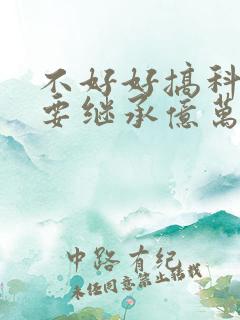 不好好搞科
要继承億萬
中路有纪
未经同意禁止转载